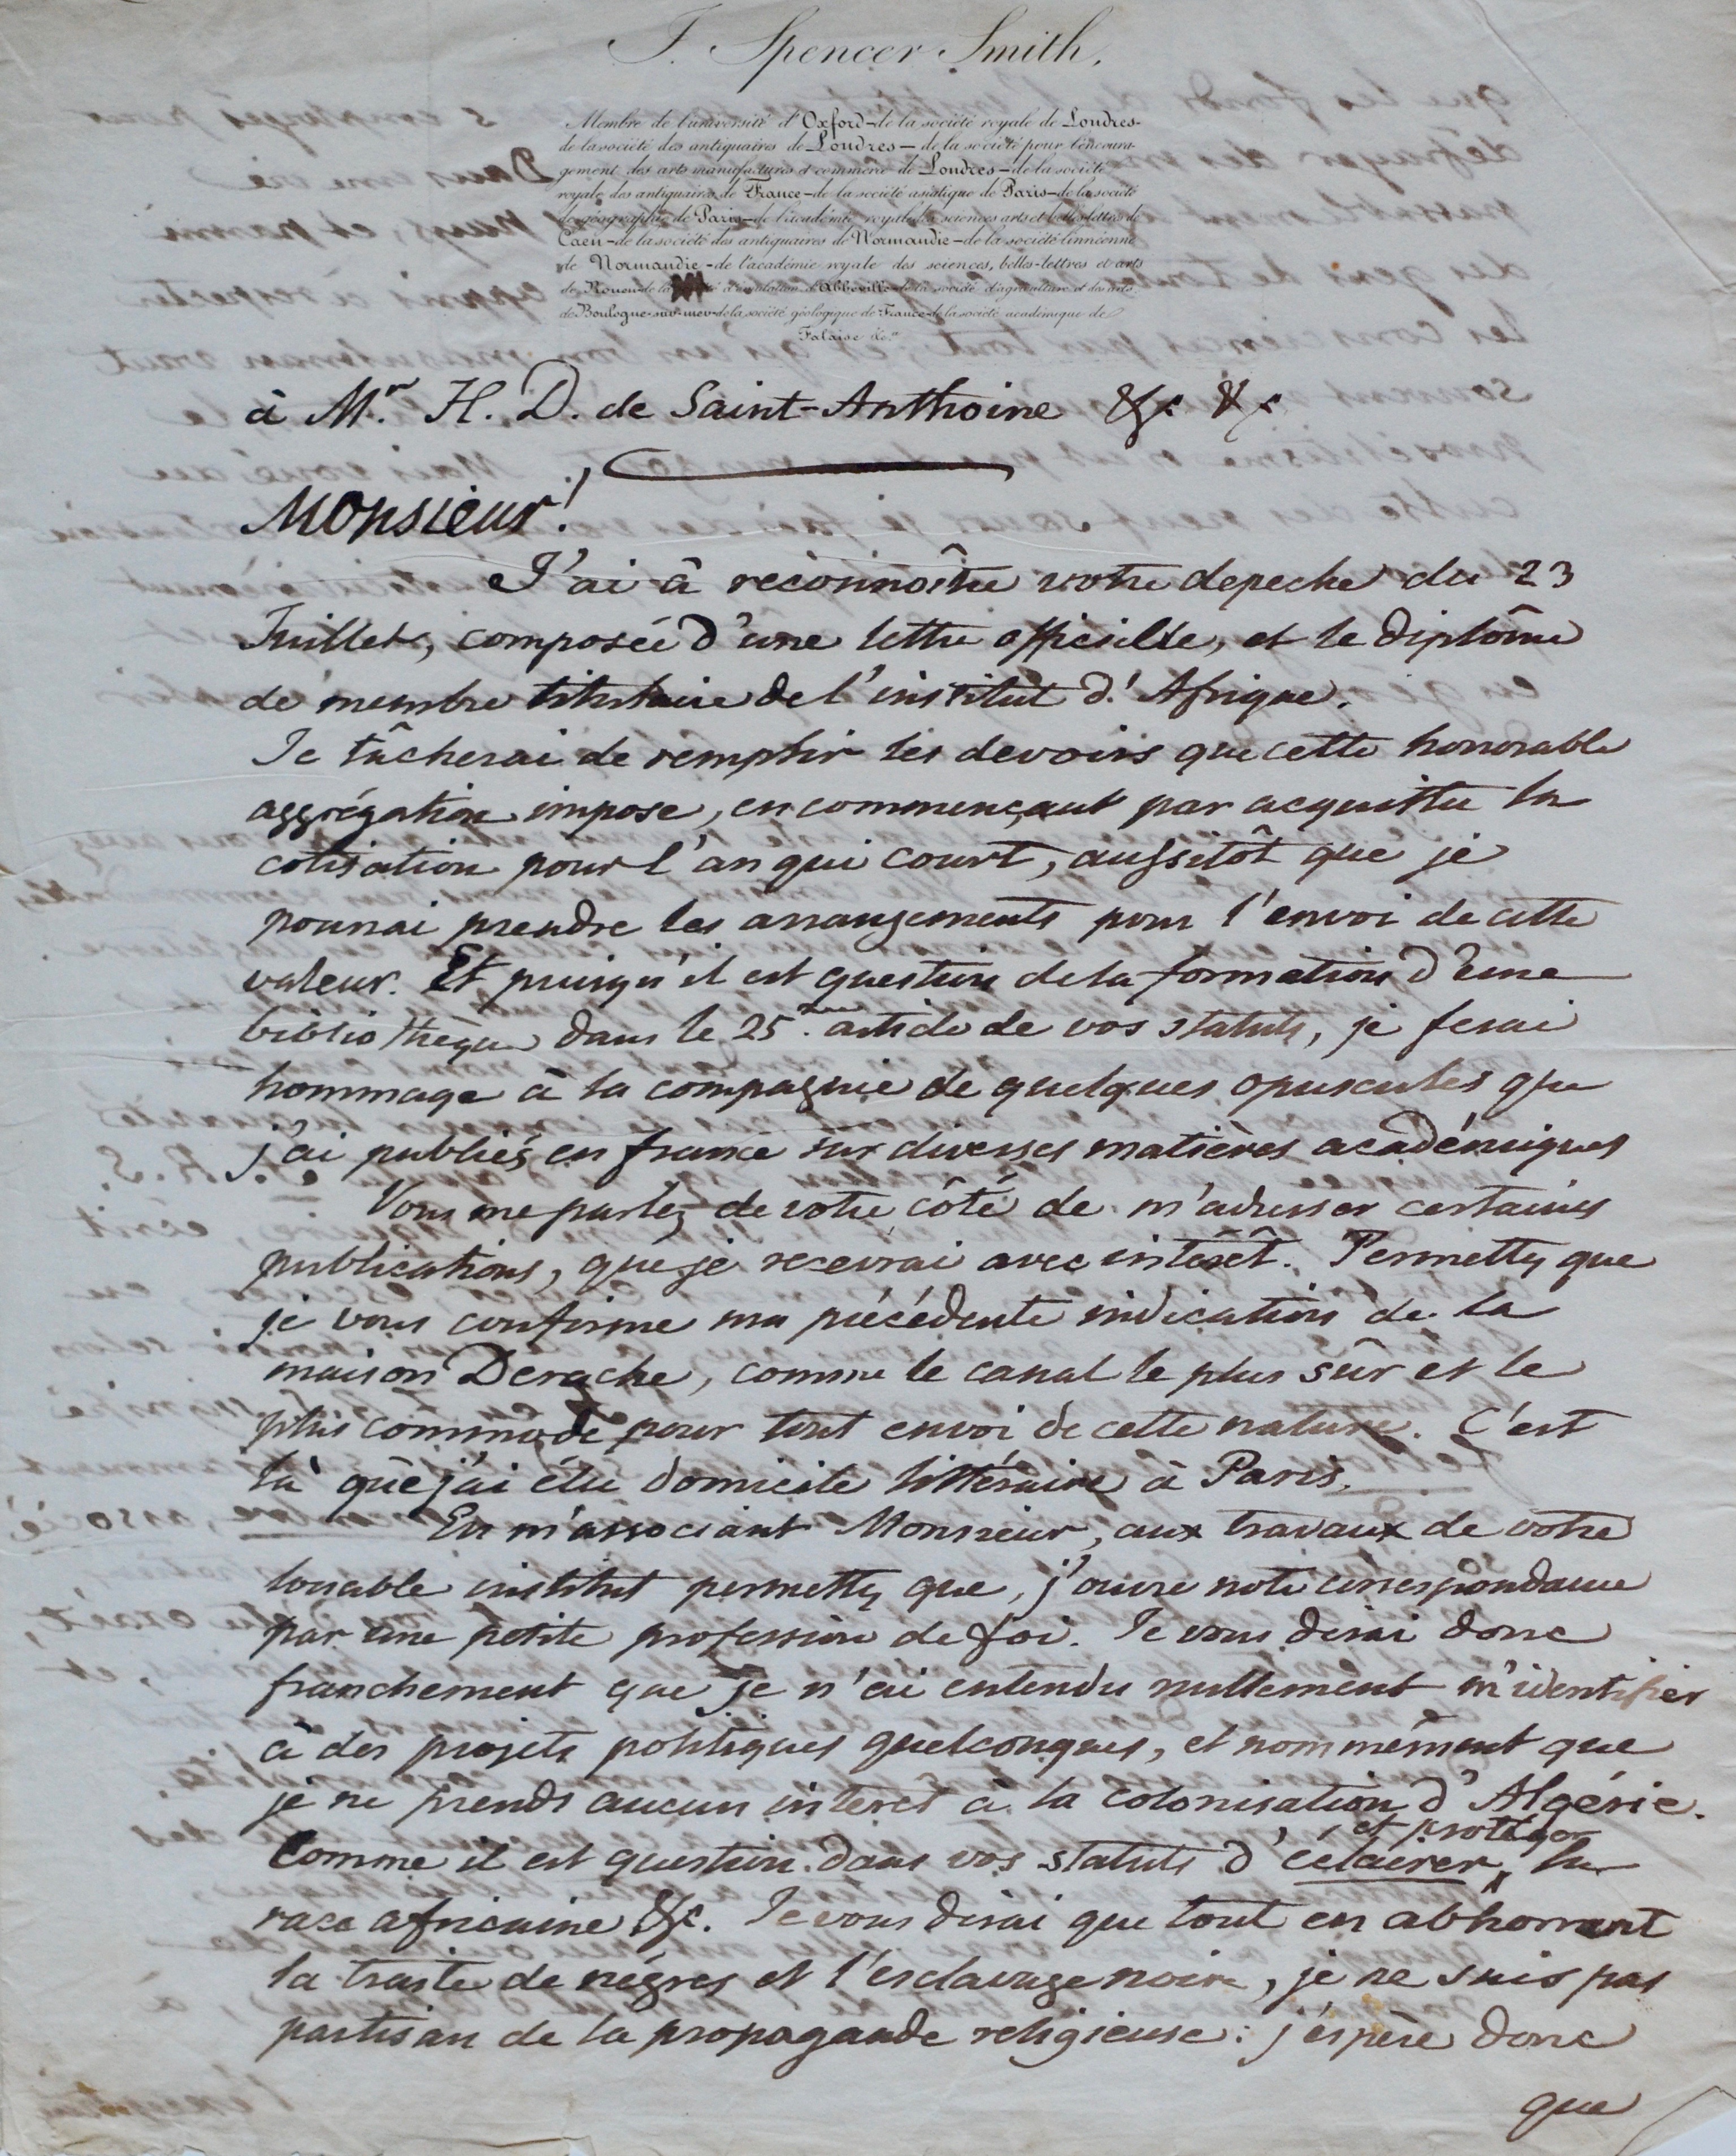 J. Spencer Smith,
Membre de l'université d'Oxford — de la société royale de Londres —
de la société des antiquaires de Londres — de la société pour l'encoura-
gement des arts manufactures et commerce de Londres — de la société
royale des antiquaires de France — de la société asiatique de Paris — de la société
de géographie de Paris — de l'académie royale des sciences arts et belles lettres de
Caen — de la société des antiquaires de Normandie — de la société linnéenne
de Normandie — de l'académie royale des sciences, belles-lettres et arts
de Rouen — de la d'émulation d'Abbeville — de la société d'agriculture et des arts
de Boulogne-sur-mer — de la société géologique de France — de la société académique de
Falaise &c.
à Mr. H. D. de Saint-Anthoine &c &c
Monsieur!
J'ai à reconnoître votre depeche du 23
Juillet, composée d'une lettre officielle, et le diplôme
de membre titulaire de l'institut d'Afrique.
Je tâcherai de remplir les devoirs que cette honorable
aggrégation impose, en commençant par acquitter la
cotisation pour l'an qui court, aussitôt que je
pourrai prendre les arrangements pour l'envoi de cette
valeur. Et puisqu'il est question de la formation d'une
bibliothèque dans le 25me article de vos statuts, je ferai
hommage à la compagnie de quelques opuscules que
j'ai publiés en france sur diverses matières académiques
Vous me parlez de votre côté de m'adresser certaines
publications, que je recevrai avec intérêt. Permettez que
je vous confirme ma précédente indication de la
maison Derache, comme le canal le plus sûr et le
plus commode pour tout envoi de cette nature. C'est
là que j'ai élu domicile littéraire à Paris.
En m'associant Monsieur, aux travaux de votre
louable institut permettez que, j'ouvre notre correspondance
par une petite profession de foi. Je vous dirai donc
franchement que je n'ai entendu nullement m'identifier
à des projets politiques quelconques, et nommément que
je ne prends aucun interet à la colonisation d'Algérie.
et protéger
Comme il est question dans vos statuts d'éclairer, la
race africaine &c. Je vous dirai que tout en abhorrant
la traite de négres et l'esclavage noire, je ne suis pas
partisan de la propagande religieuse: j'espère donc
que